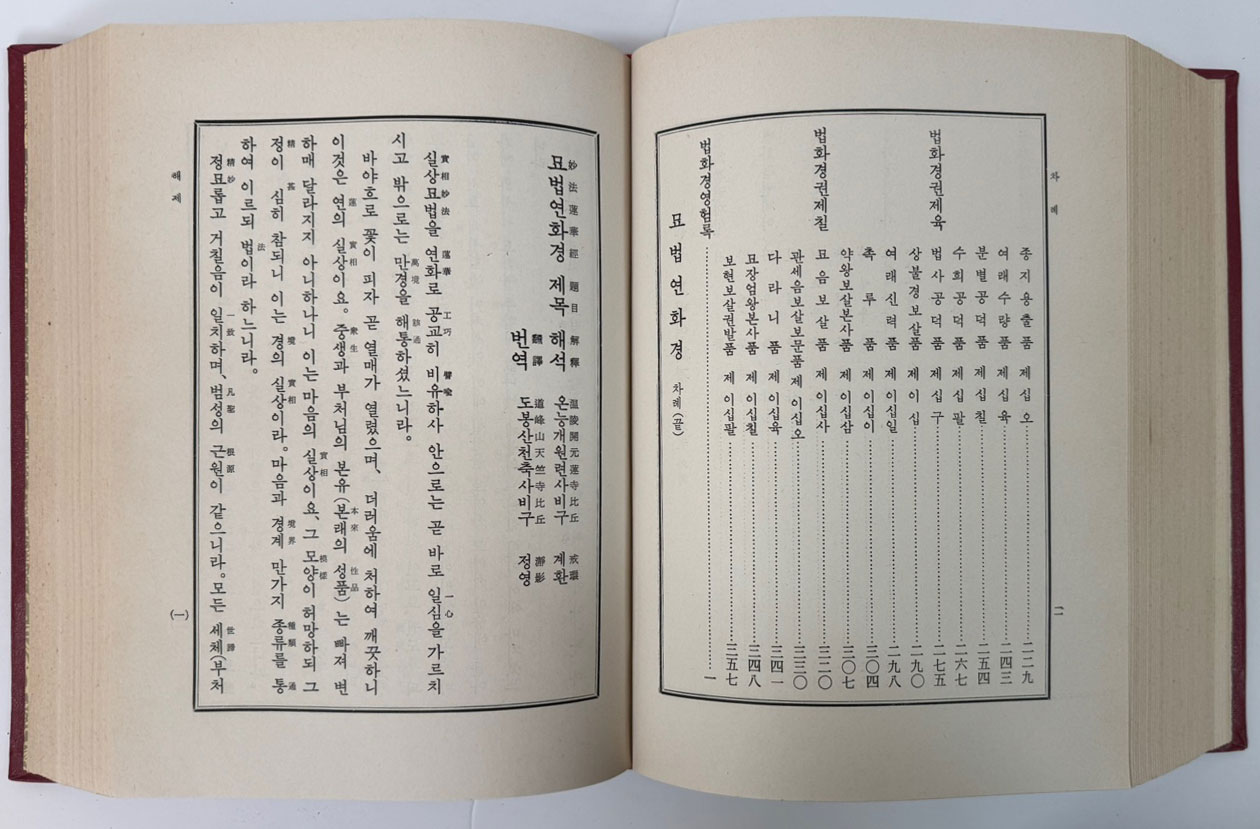 차례
二
종지용출품 제십오 二二九
여래수량품 제십육 二四三
분별공덕품 제십칠 二五四
수희공덕품 제십팔 二六七
법화경권제육 법사공덕품 제십구 二七五
상불경보살품 제이십 二九〇
여래신력품 제이십일 二九八
촉루품 제이십이 三〇四
약왕보살본사품 제이십삼 三〇七
법화경권제칠 묘음보살품 제이십사 三二〇
관세음보살보문품 제이십오 三三〇
다라니품 제이십육 三四一
묘장엄왕본사품 제이십칠 三四八
보현보살권발품 제이십팔 三五七
법화경영험록 一
묘법연화경 차례(끝)
妙法蓮華經 題目 解釋 溫陵開元蓮寺比丘 戒環
묘법연화경 제목 해석 온능개원련사비구 계환
飜譯 道峰山天竺寺比丘 瀞影
번역 도봉산천축사비구 정영
實相妙法 蓮華 工巧 譬喩 一心
실상묘법을 연화로 공교히 비유하사 안으로는 곧 바로 일심을 가르치
萬境 該通
시고 밖으로는 만경을 해통하셨느니라.
바야흐로 꽃이 피자 곧 열매가 열렸으며, 더러움에 처하여 깨끗하니
蓮 實相 衆生 本來 性品
이것은 연의 실상이요. 중생과 부처님의 본유(본래의 성품)는 빠져 변
實相 模樣
하매 달라지지 아니하나니 이는 마음의 실상이요, 그 모양이 허망하되 그
精 甚 境 實相 境界 種類 通
정이 심히 참되니 이는 경의 실상이라. 마음과 경계 만가지 종류를 통
法
하여 이르되 법이라 하느니라.
精妙 一致 凡聖 根源 世諦
정묘롭고 거칠음이 일치하며, 범성의 근원이 같으니라. 모든 세체(부처
해제
(一)